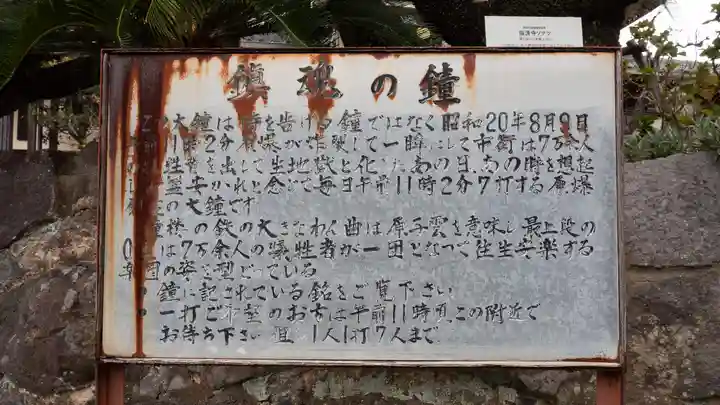 福済寺ソテツ
鎮魂の鐘
の大鐘は時を告げる鐘ではなく昭和20年8月9日
11時2分原爆が炸裂して一瞬にして市街は7万余人
牲者を出して生地獄と化したあの日、あの時を想起
安かれと念じて毎日午前11時2分7打する原爆
の大鐘です
楼の鉄の大きなわん曲は 雲を意味し最上段の
は7万余人の犠牲者が一団となって往生安楽する
の姿を型どっている
鐘に記されている銘をご覧下さい
一打ご希望のお方は午前11時頃、この附近で
お待ち下さい 但、1人1打7人まで